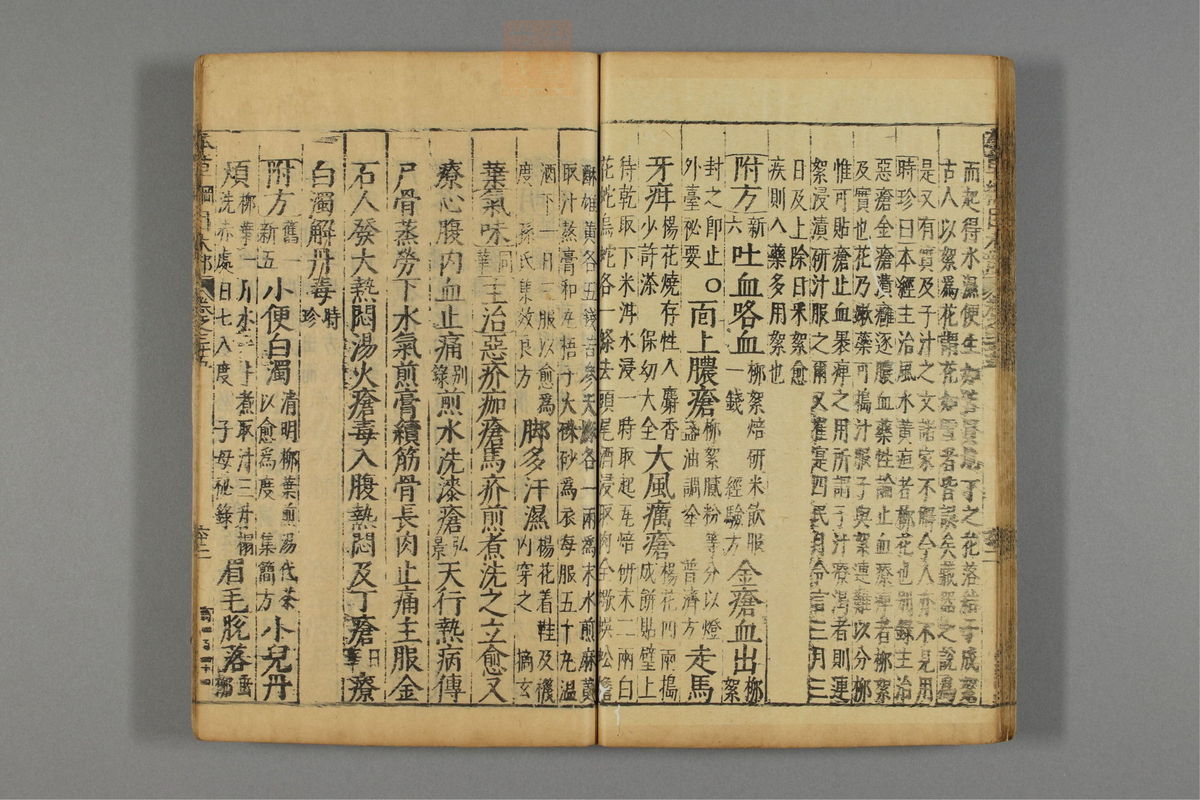 而起得水濕便生如苔
之花落結子成絮
古人以絮為花謂花如雪者皆誤矣
之說為
是又有實及子汁之文諸家不解今人亦不見用
時珍曰本經主治風水黃疸者柳花也別錄主治
惡瘡金瘡潰癰逐膿血藥性論止血療痺者柳絮
及實也花乃嫩蕊可搗汁服子與絮連難以分柳
惟可貼瘡止血裹痺之用所謂子汁療渴者則連
絮浸漬研汁服之爾又崔寔四民月令言三月三
日及上除日采絮愈
疾則入藥多用絮也
附方新六吐血咯血柳絮焙研米飲服
一錢 經驗方金瘡血出柳絮
封之即止
外臺秘要〇面上膿瘡柳絮膩粉等分以燈
盞油調塗 普濟方走馬
牙疳楊花燒存性入麝香
少許摻 保幼大全大風癘瘡楊花四兩搗
成餅貼壁上
待乾取下米泔水浸一時取起瓦焙研末二兩白
花蛇烏蛇各一條去頭尾酒浸取肉全蠍蜈蚣蟾
酥雄黃各五錢苦參天麻各一兩為末水煎麻黃
取汁熬膏和丸梧子大硃砂為衣每服五十九溫
酒下一日三服以愈為
度 孫氏集效良方脚多汗濕楊花着鞋及襪
內穿之 摘玄
葉氣味同華主治惡疥痂瘡馬疥煎煮洗之立愈又
療心腹內血止痛別錄煎水洗漆瘡弘景天行熱病傳
尸骨蒸勞下水氣煎膏續筋骨長肉止痛主服金
石人發大熱悶湯火瘡毒入腹熱悶及丁瘡日華療
白濁解丹毒時珍
附方舊一新五小便白濁清明柳葉煎湯代茶
以愈為度 集簡方小兒丹
煩柳葉一斤水一斗煮取汁三升搨
洗赤處日七八度 子母秘錄眉毛脫落垂柳